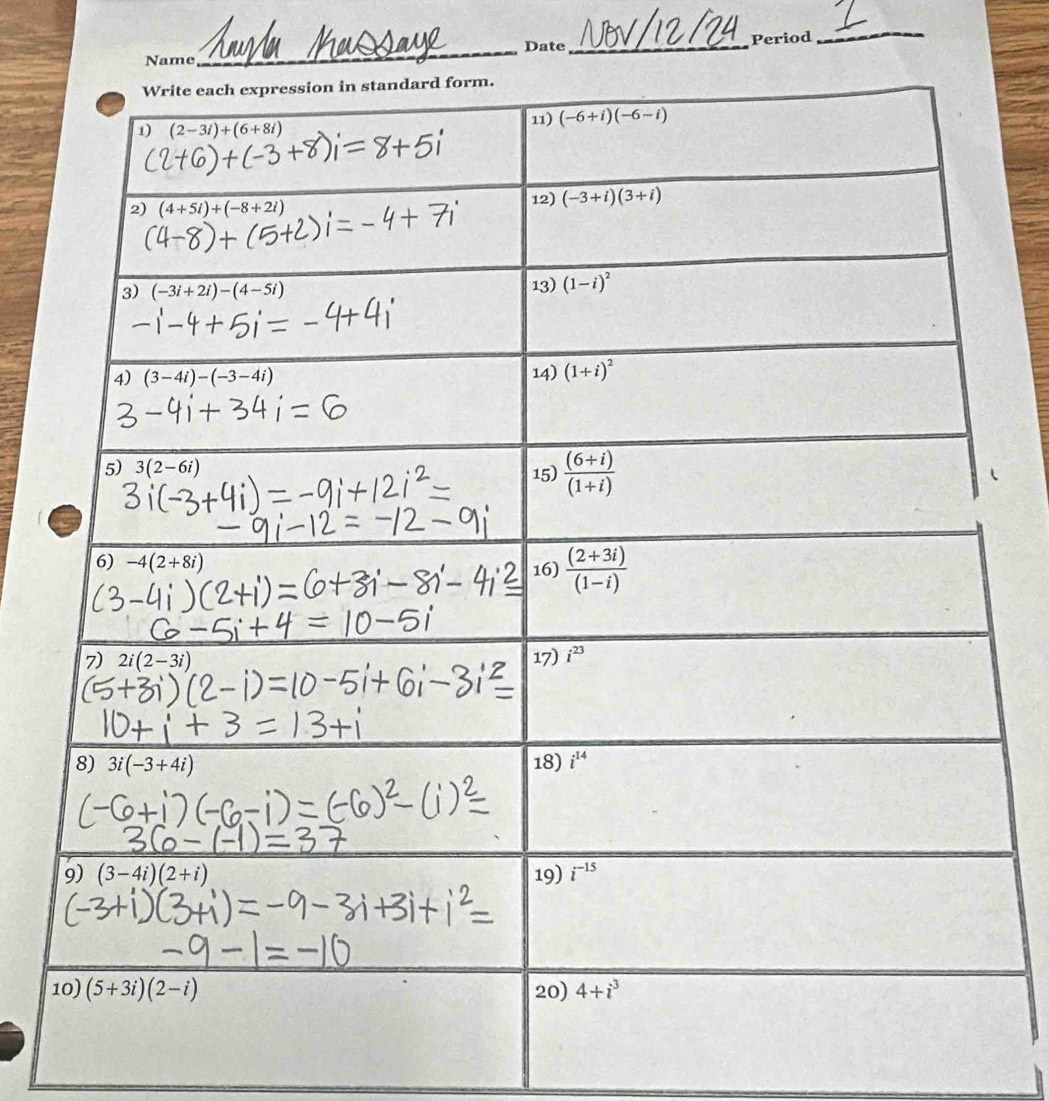 Name Date Nov/12/24 Period I
Write each expression in standard form.
1) (2-3i)+(6+8i)
(2+6)+(-3+8)i=8+5i
2) (4+5i)+(-8+2i)
(4-8)+(5+2)i=-4+7i
3) (-3i+2i)-(4-5i)
-i-4+5i=-4+4i
4) (3-4i)-(-3-4i)
3-4i+34i=6
5) 3(2-6i)
3i(-3+4i)=-9i+12i²=
-9i-12=-12-9i
6) -4(2+8i)
(3-4i)(2+i)=6+3i-8i-4i²=
6-5i+4=10-5i
7) 2i(2-3i)
(5+3i)(2-i)=10-5i+6i-3i²=
10+i+3=13+i
8) 3i(-3+4i)
(-6+i)(-6-i)=(-6)²-(i)²=
36-(-1)=37
9) (3-4i)(2+i)
(-3+i)(3+i)=-9-3i+3i+i²=
-9-1=-10
10) (5+3i)(2-i)
11) (-6+i)(-6-i)
12) (-3+i)(3+i)
13) (1-i)²
14) (1+i)²
15) (6+i)/(1+i)
16) (2+3i)/(1-i)
17) i²³
18) i¹⁴
19) i⁻¹⁵
20) 4+i³